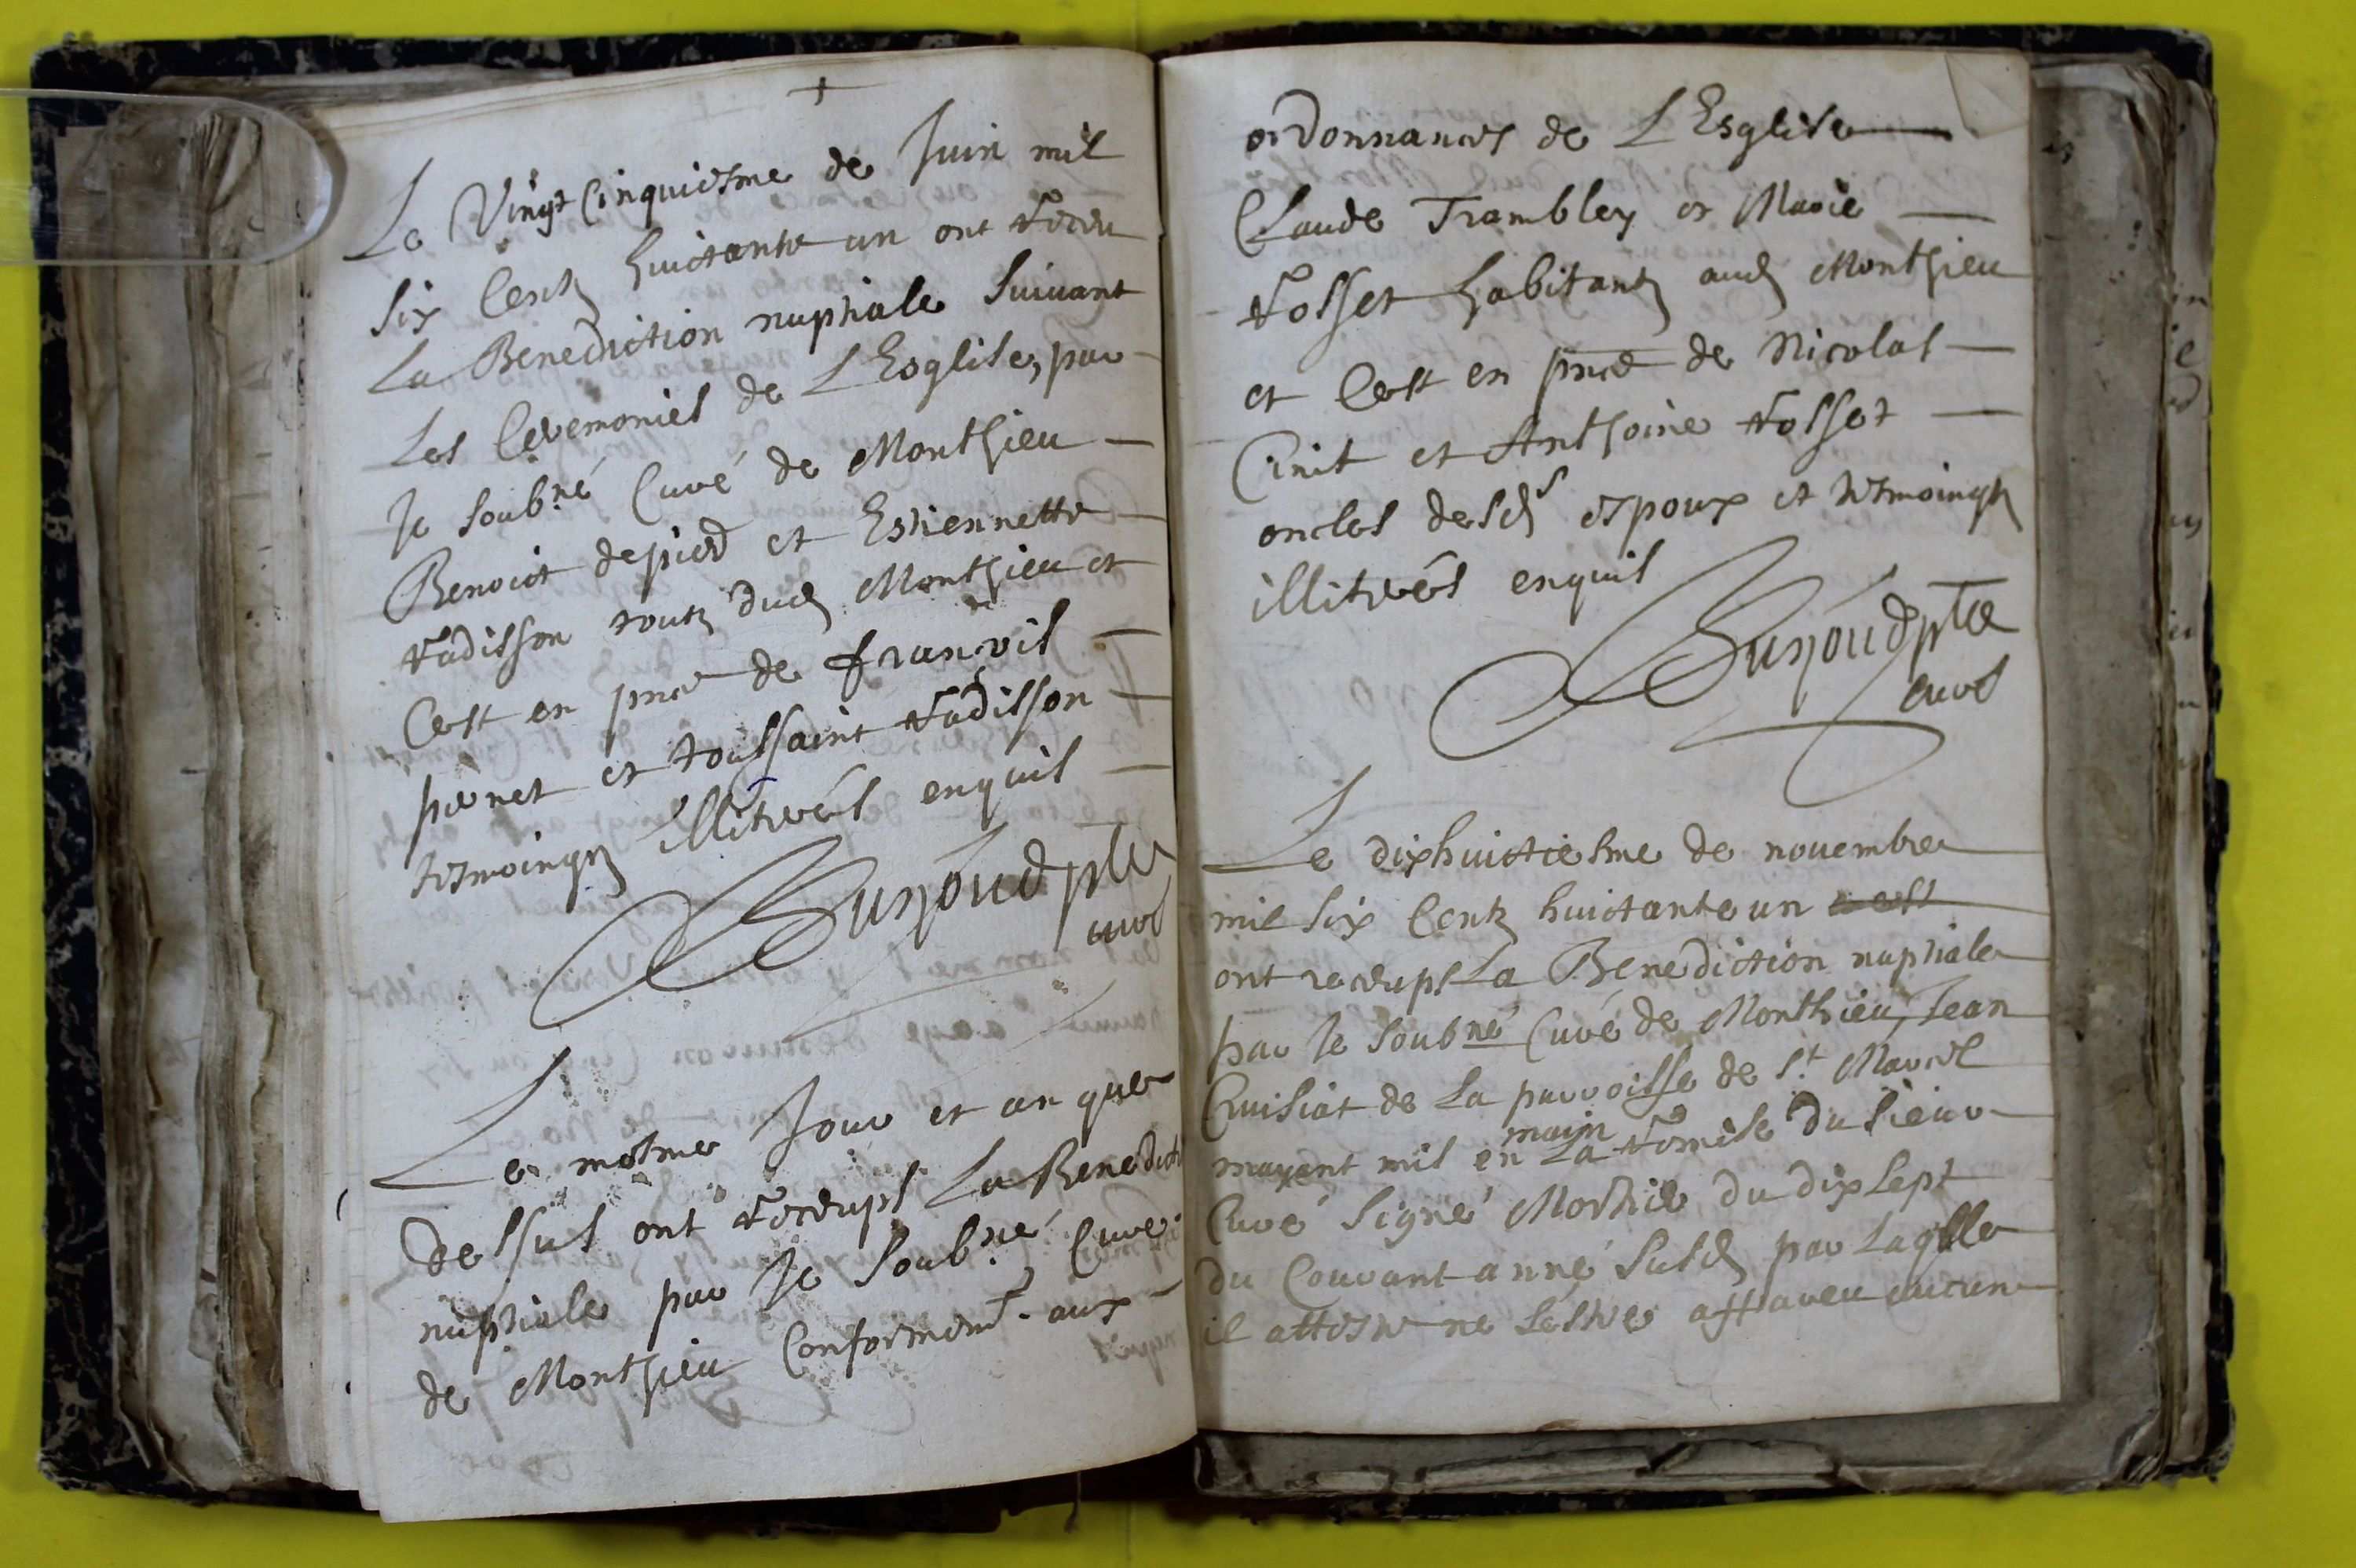 Le Vingt Cinquiesme de Juin mil
six Centz huictante un ont receu
La Benediction nuptiale suivant
Les Ceremonies de L'Esglise, par
Je soub.né Curé de Monthieu
Benoict depierd et Estiennette
radisson touts dud Monthieu et
Cest en pnce de françois
perret et toussaint radisson
tesmoings illiterés enquis
pbre
curé
Le mesme Jour et an que
dessus ont receups La Benedicti
nuptiale par Je Soub.né Curé
de Monthieu Conformemt. aux
ordonnances de L'Esglise
Claude Trambley et Marie
rosset habitantz aud Monthieu
et Cest en pnce de Nicolas
Cinit et Anthoine rosset
oncles desd.s espoux et tesmoings
illiterés enquis
pbre
curé
Le dixhuictiesme de novembre
mil six Centz huictante un
ont receups La Benediction nuptiale
par Je Soubné Curé de Monthieu, Jean
Cruisiat de La parroisse de St. Marcel
mayant mis en main La remise du sieur
Curé signé du dixsept
du Courant année susd par Laqlle
il atteste ne sestre aucun